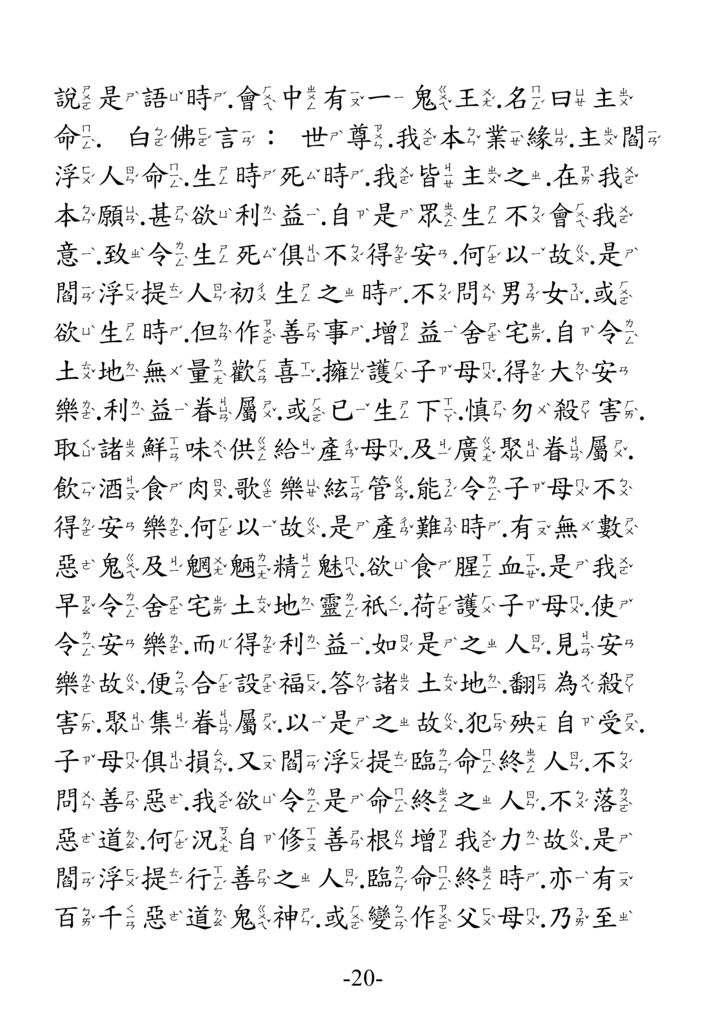 說是語時.會中有一鬼王.名曰主
命. 白佛言： 世尊.我本業緣.主閻
浮人命.生時死時.我皆主之.在我
本願.甚欲利益.自是眾生不會我
意.致令生死俱不得安.何以故.是
閻浮提人初生之時.不問男女.或
欲生時.但作善事.增益舍宅.自令
土地無量歡喜.擁護子母.得大安
樂.利益眷屬.或已生下.慎勿殺害.
取諸鮮味供給產母.及廣聚眷屬.
飲酒食肉.歌樂絃管.能令子母不
得安樂.何以故.是產難時.有無數
惡鬼及魍魎精魅.欲食腥血.是我
早令舍宅土地靈祇.荷護子母.使
令安樂.而得利益.如是之人.見安
樂故.便合設福.答諸土地.翻為殺
害.聚集眷屬.以是之故.犯殃自受.
子母俱損.又閻浮提臨命終人.不
問善惡.我欲令是命終之人.不落
惡道.何況自修善根增我力故.是
閻浮提行善之人.臨命終時.亦有
百千惡道鬼神.或變作父母.乃至
-20-